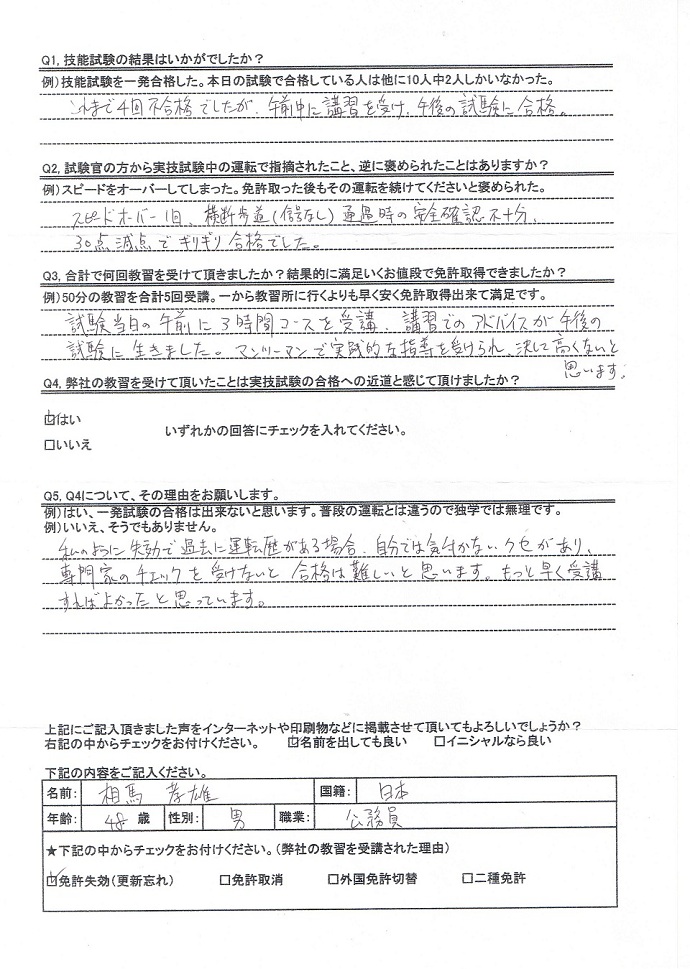 Q1, 技能試験の結果はいかがでしたか？
例）技能試験を一発合格した。本日の試験で合格している人は他に10人中2人しかいなかった。
これまで4回不合格でしたが、午前中に講習を受け、午後の試験に合格。
Q2, 試験官の方から実技試験中の運転で指摘されたこと、逆に褒められたことはありますか？
例）スピードをオーバーしてしまった。免許取った後もその運転を続けてくださいと褒められた。
スピードオーバー1回、横断歩道（信号なし）通過時の安全確認不十分、
30点減点でギリギリ合格でした。
Q3, 合計で何回教習を受けて頂きましたか？結果的に満足いくお値段で免許取得できましたか？
例）50分の教習を合計5回受講。一から教習所に行くよりも早く安く免許取得出来て満足です。
試験当日の午前に3時間コースを受講、講習でのアドバイスが午後の
試験に生きました。マンツーマンで実践的な指導を受けられ、決して高くないと
思います。
Q4, 弊社の教習を受けて頂いたことは実技試験の合格への近道と感じて頂けましたか？
☑はい
いずれかの回答にチェックを入れてください。
□いいえ
Q5, Q4について、その理由をお願いします。
例）はい、一発試験の合格は出来ないと思います。普段の運転とは違うので独学では無理です。
例）いいえ、そうでもありません。
私のように失効で過去に運転歴がある場合、自分では気付かないクセがあり、
専門家のチェックを受けないと合格は難しいと思います。もっと早く受講
すればよかったと思っています。
上記にご記入頂きました声をインターネットや印刷物などに掲載させて頂いてもよろしいでしょうか？
右記の中からチェックをお付けください。 ☑名前を出しても良い □イニシャルなら良い
下記の内容をご記入ください。
名前： 相馬 孝雄 国籍： 日本
年齢： 48 歳 性別： 男 職業： 公務員
★下記の中からチェックをお付けください。（弊社の教習を受講された理由）
☑免許失効（更新忘れ） □免許取消 □外国免許切替 □二種免許